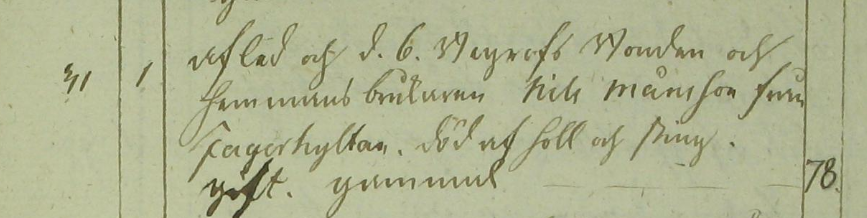 31 1 afled och d. 6. Begrofs Wonden och
hemmans brukaren Nils Månsson från
Fagerhyltan. död af håll och sting.
gift. gammal 78.